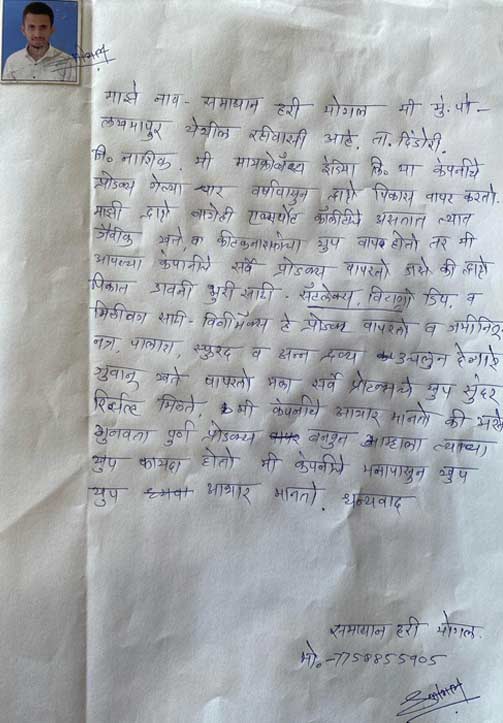 माझे नाव - समाधान हरी मोगल मी मु. पो -
लखमापुर येथील रहीवासी आहे. ता. दिंडोरी.
जि. नाशिक. मी मायक्रोबॅक्स इंडिया लि. या कंपनीचे
प्रोडक्स गेल्या चार वर्षापासुन द्राक्षे पिकास वापर करतो.
माझी द्राक्षे बागेही एक्सपोर्ट कॉलीटीचे असतात त्यात
जैवीक खते व कीटकनाशकांचा खुप वापर होतो तर मी
आपल्या कंपनीचे सर्वे प्रोडक्स वापरतो जसे की द्राक्षे
पिकात डावनी भुरी साठी - सॅटलेक्स, विटाग्रो डिप. व
मिलीबग साठी - हे प्रोडक्स वापरतो व जमीनितुन
नत्र, पालाश, स्फुरद व अन्न द्रव्य उचलुन देणारे
जीवानु खते वापरतो मला सर्वे खुप सुंदर
रिझल्ट मिळते. मी कंपनीचे आभार मानतो की
गुनवता पुर्ण प्रोडक्स बनवुन आम्हाला त्याचा
खुप फायदा होतो मी कंपनीचे मनापासुन खुप
खुप आभार मानतो. धन्यवाद
समाधान हरी मोगल.
मो. - 7758855905